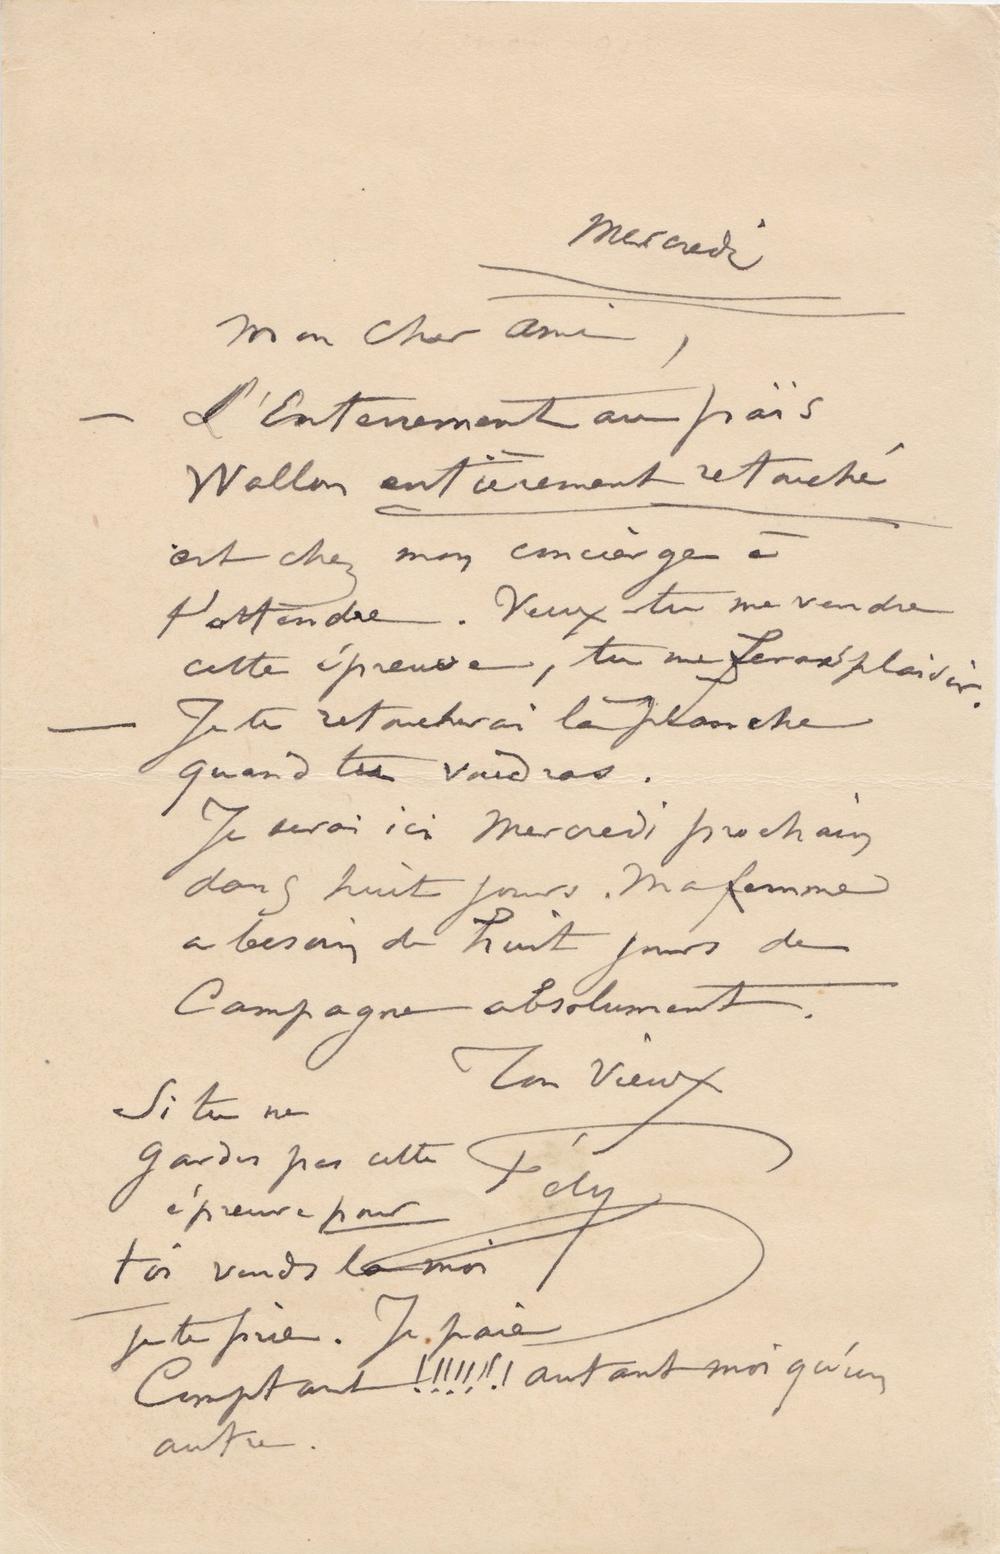 Mercredi
Mon cher ami,
— L'Enterrement au païs
Wallon entièrement retouché
est chez mon concièrge à
t'attendre. Veux tu me vendre
cette épreuve, tu me feras plaisir.
— Je te retoucherai la planche
quand tu voudras.
Je serai ici Mercredi prochain
dans huit jours. Ma femme
a besoin de huit jours de
Campagne absolument.
Ton vieux
Fély
Si tu ne
gardes pas cette
épreuve pour
toi vends la moi
je te prie. Je paie
Comptant !!!!!!! autant moi qu'un
autre.